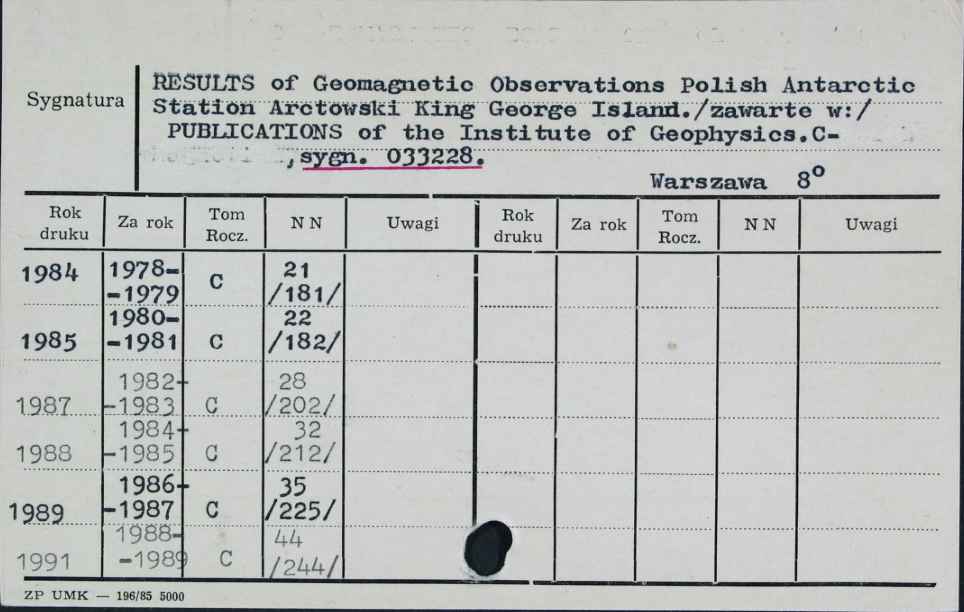 RESULTS of Geomagnetic Observations Polish Antarctic
Sygnatura
Station Arctowski King George Island./zawarte w:/
PUBLICATIONS of the Institute of Geophysics.C-
,sygn. 033228.
Warszawa 8°
Rok druku Za rok Tom Rocz. N N Uwagi Rok druku Za rok Tom Rocz. N N Uwagi
1984 1978- -1979 C 21 /181/
1985 1980- -1981 C 22 /182/
1987 1982- -1983 C 28 /202/
1988 1984- -1985 C 32 /212/
1989 1986- -1987 C 35 /225/
1991 1988- -1989 C 44 /244/
ZP UMK — 196/85 5000